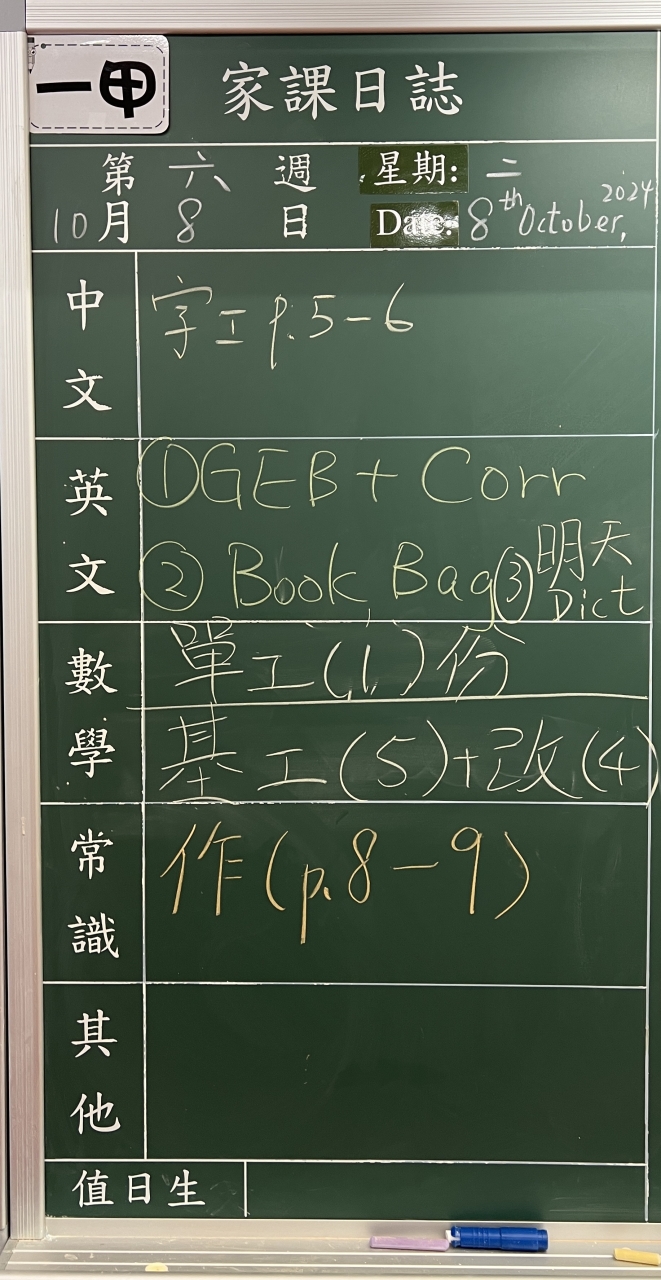 一甲
家課日誌
第 六 週 星期: 二
10月 8 日 Date: 8th October, 2024
中文
字工 p.5-6
英文
①GEB + Corr
② Book Bag ③ 明天 Dict
數學
單工(1)份
基工(5)+改(4)
常識
作(p.8-9)
其他
值日生